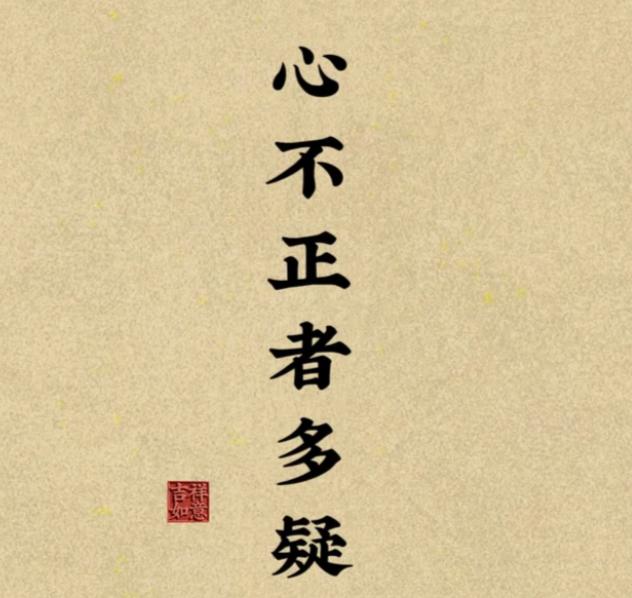 心不正者多疑
吉祥
如意